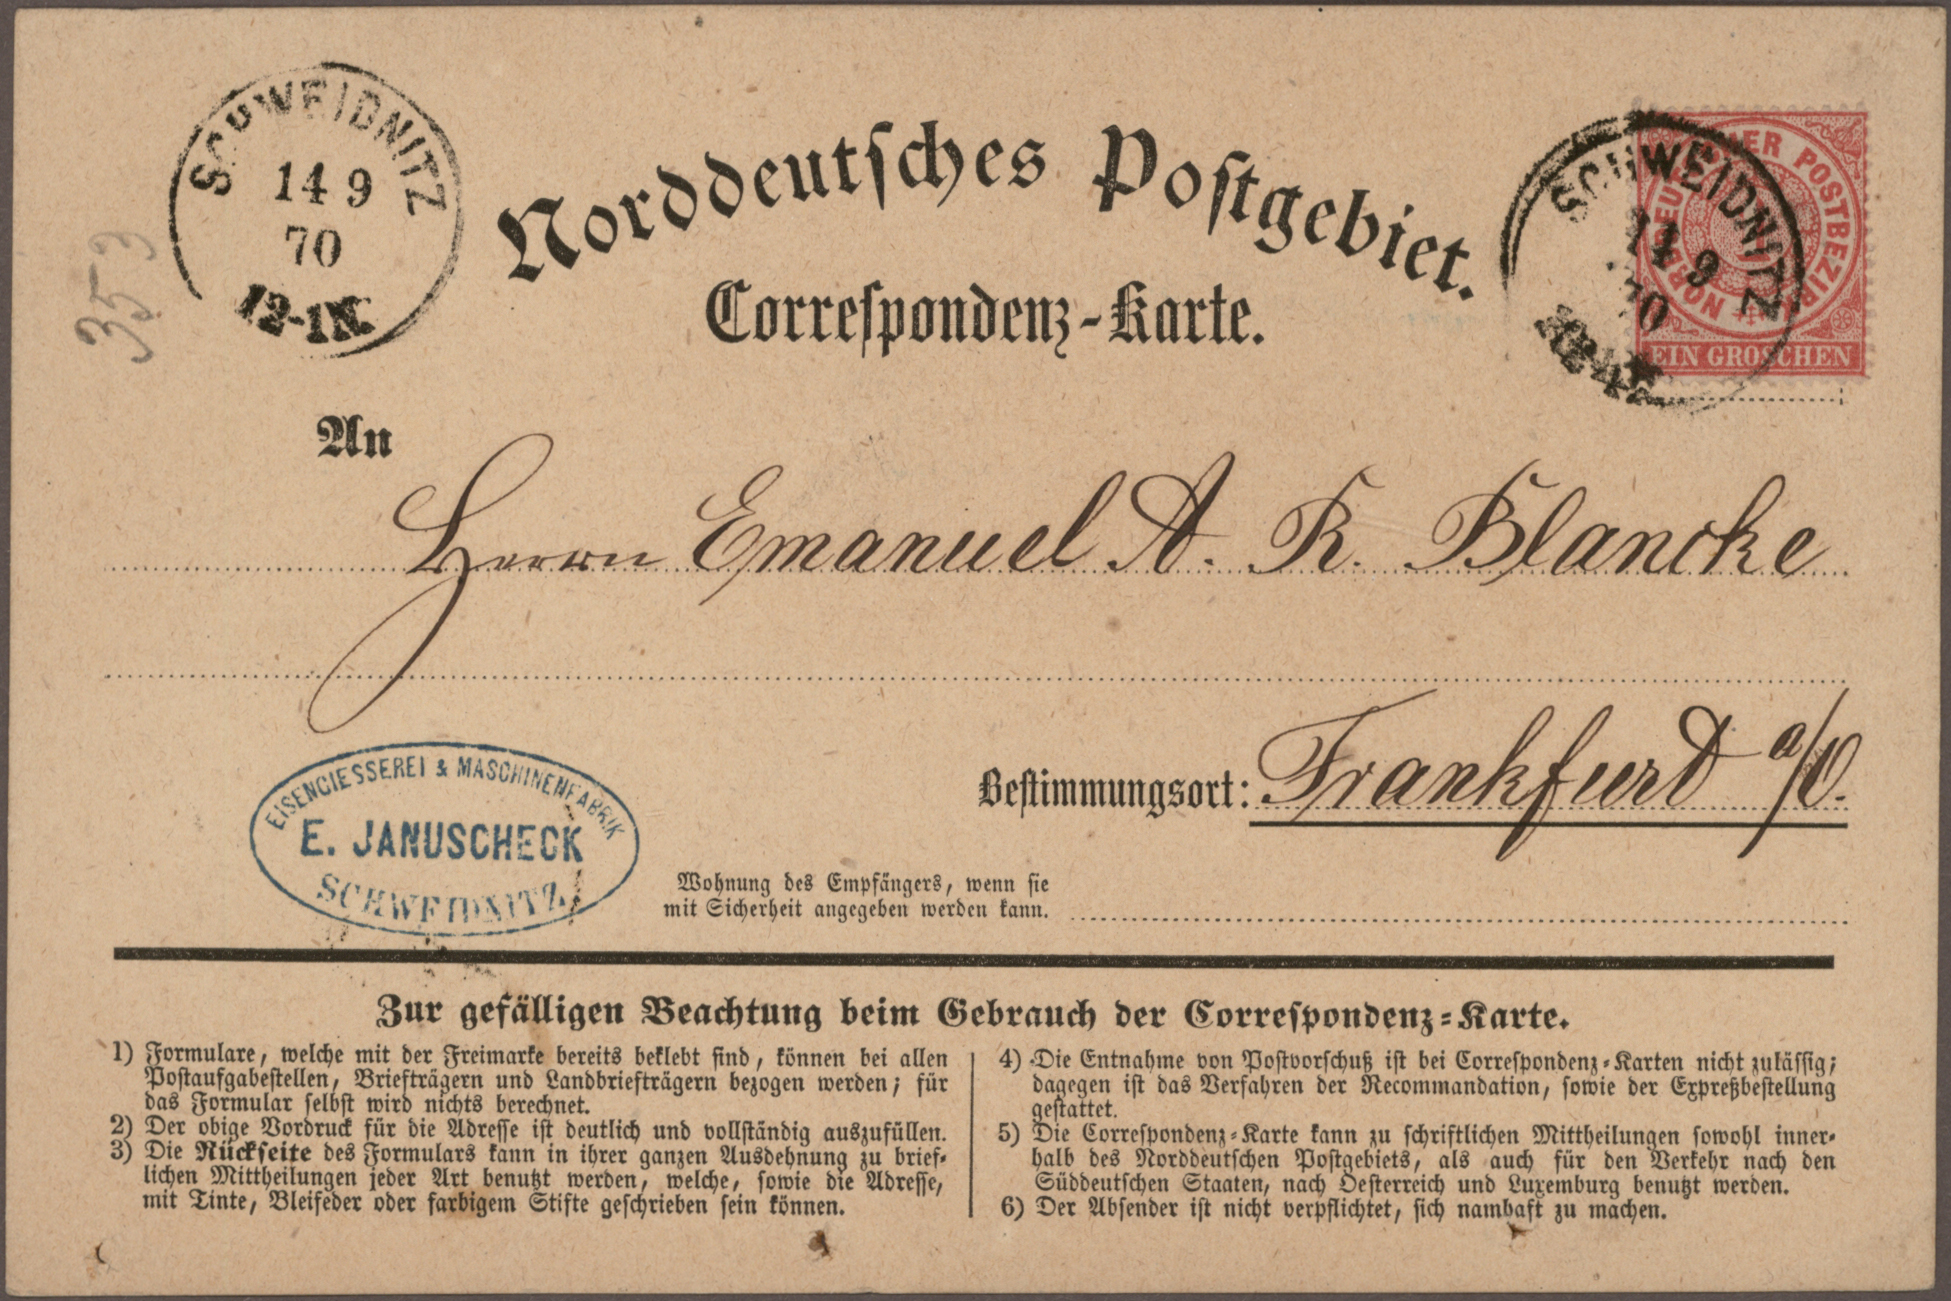 SCHWEIDNITZ
14 9
70
12-1N.
353
Norddeutsches Postgebiet.
Correspondenz-Karte.
NORDDEUTSCHER POSTBEZIRK
EIN GROSCHEN
SCHWEIDNITZ
14 9
70
An
Herrn Emanuel A. R. Blancke
Bestimmungsort: Frankfurt a/O.
EISENGIESSEREI & MASCHINENFABRIK
E. JANUSCHECK
SCHWEIDNITZ
Wohnung des Empfängers, wenn sie
mit Sicherheit angegeben werden kann.
Zur gefälligen Beachtung beim Gebrauch der Correspondenz-Karte.
1) Formulare, welche mit der Freimarke bereits beklebt sind, können bei allen
Postaufgabestellen, Briefträgern und Landbriefträgern bezogen werden; für
das Formular selbst wird nichts berechnet.
2) Der obige Vordruck für die Adresse ist deutlich und vollständig auszufüllen.
3) Die Rückseite des Formulars kann in ihrer ganzen Ausdehnung zu brief-
lichen Mittheilungen jeder Art benutzt werden, welche, sowie die Adresse,
mit Tinte, Bleifeder oder farbigem Stifte geschrieben sein können.
4) Die Entnahme von Postvorschuß ist bei Correspondenz-Karten nicht zulässig;
dagegen ist das Verfahren der Recommandation, sowie der Expreßbestellung
gestattet.
5) Die Correspondenz-Karte kann zu schriftlichen Mittheilungen sowohl inner-
halb des Norddeutschen Postgebiets, als auch für den Verkehr nach den
Süddeutschen Staaten, nach Oesterreich und Luxemburg benutzt werden.
6) Der Absender ist nicht verpflichtet, sich namhaft zu machen.